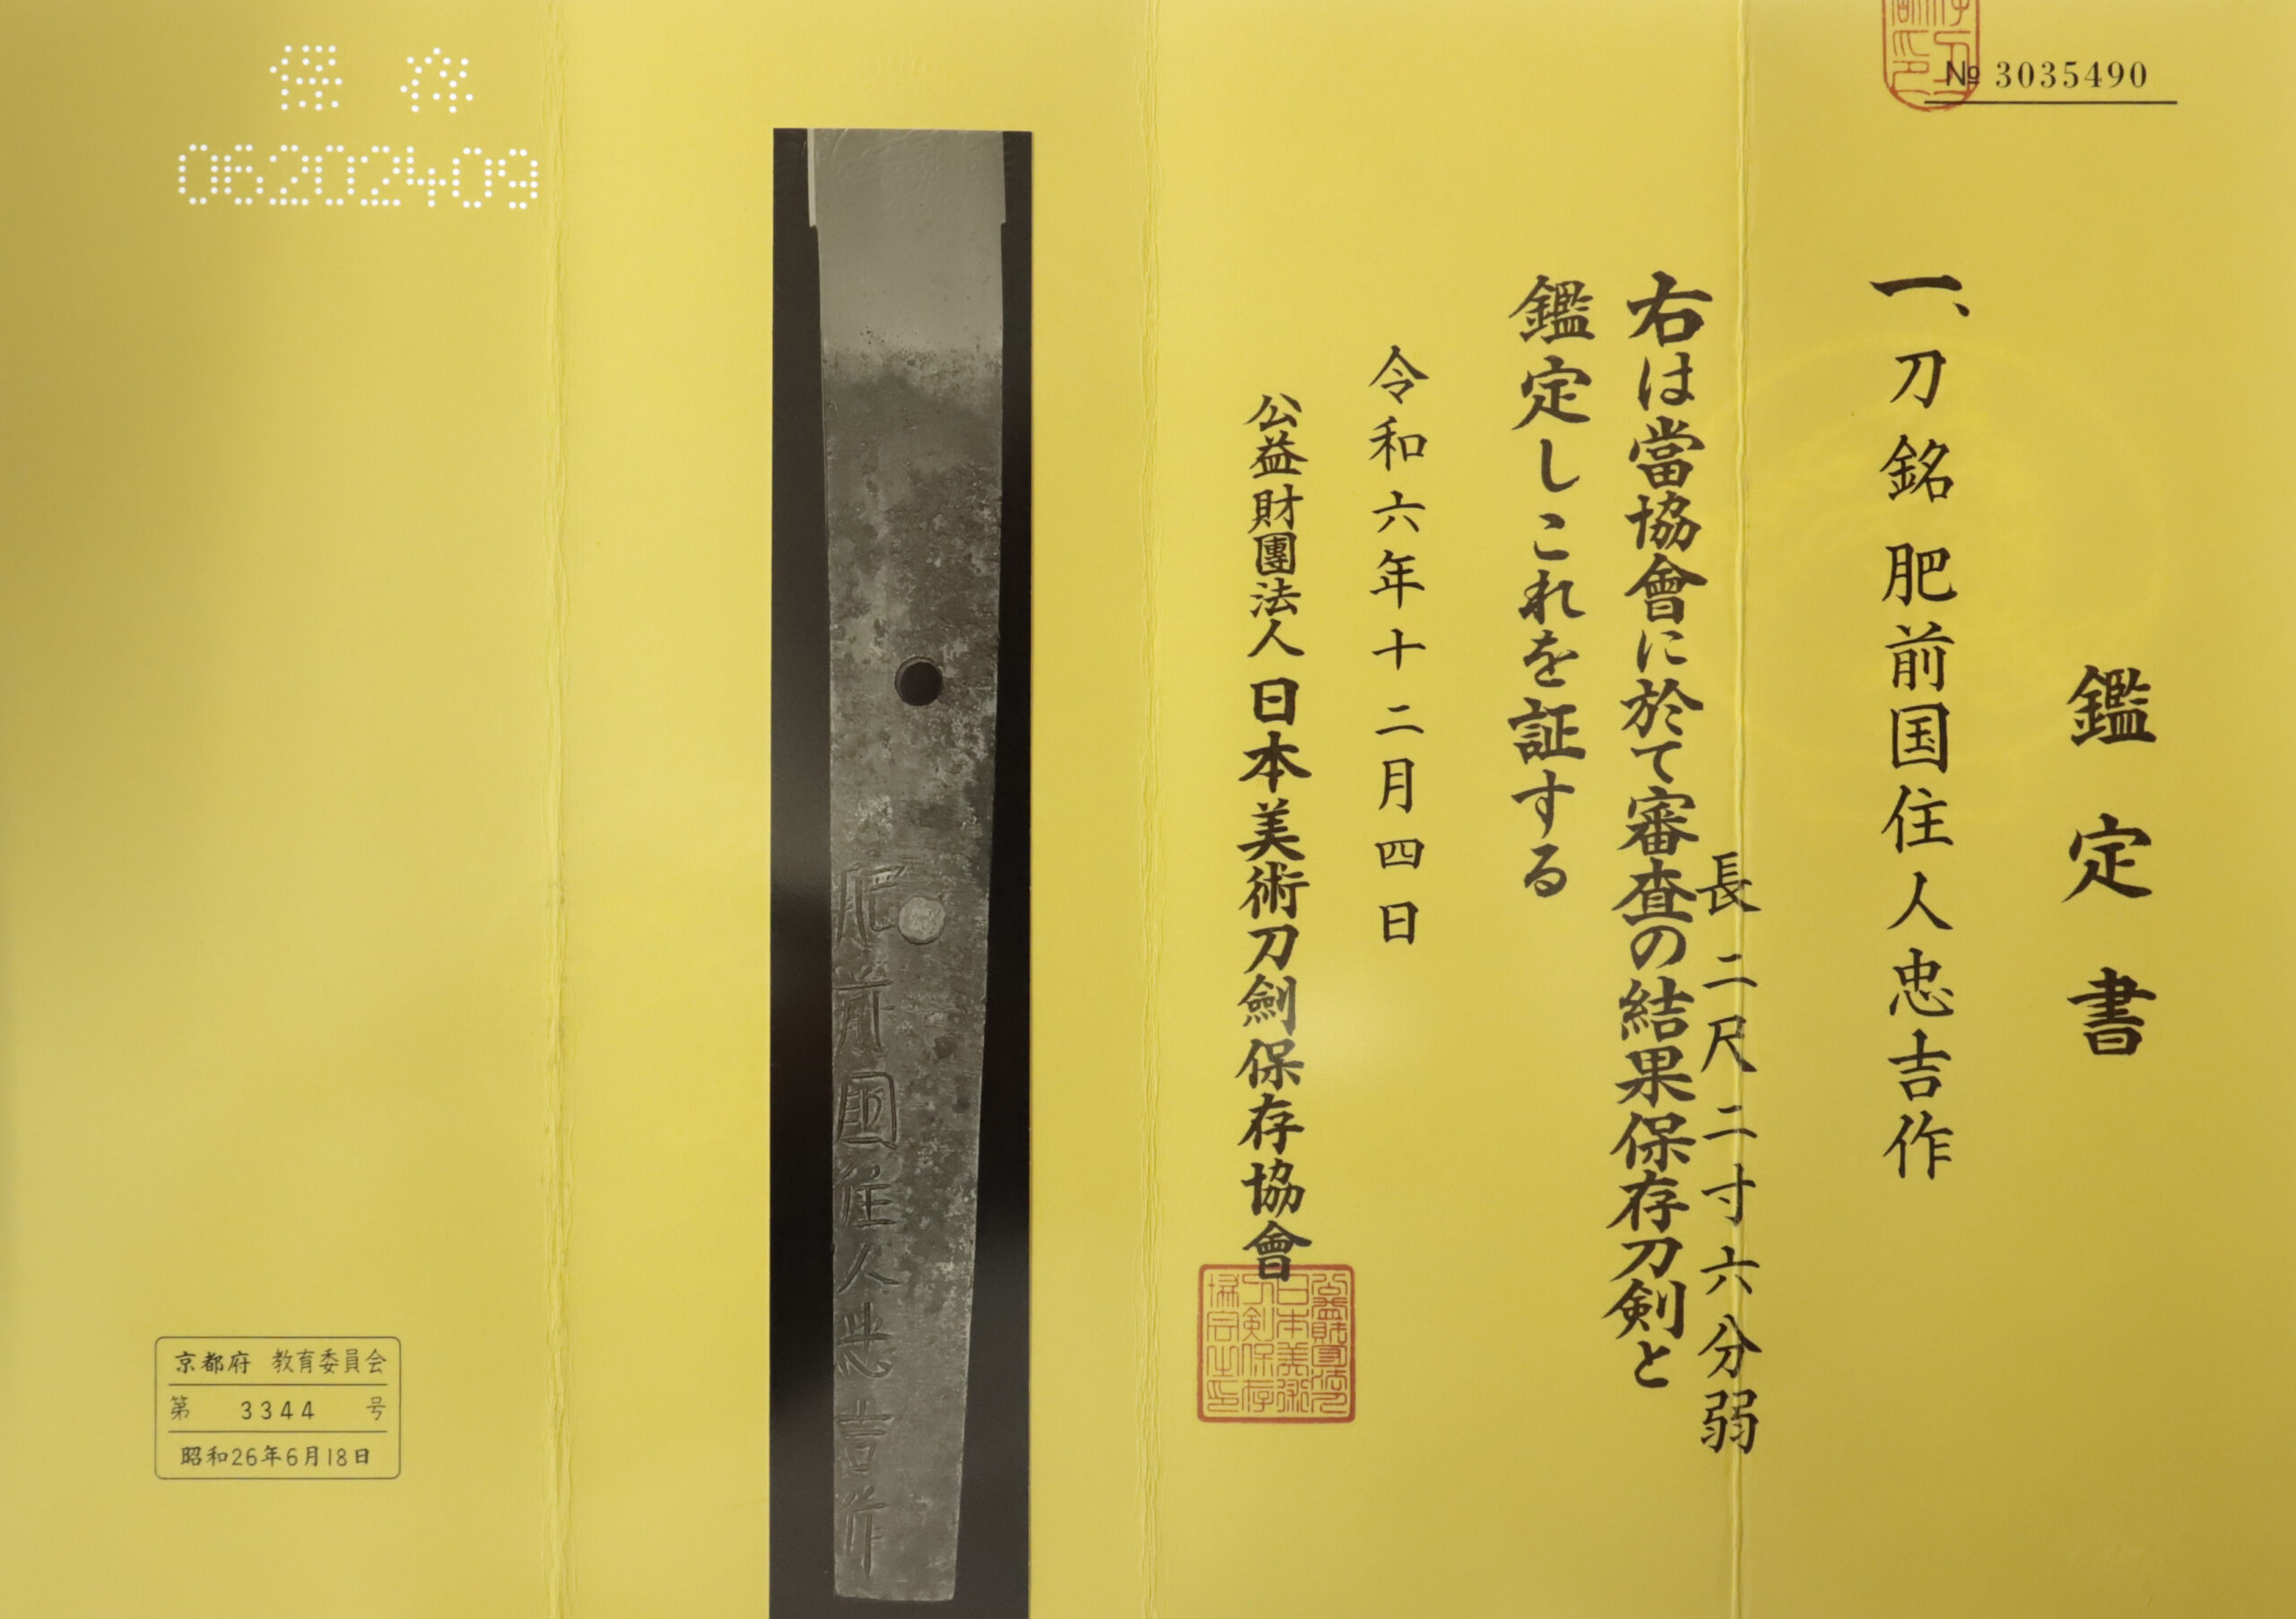 № 3035490
鑑定書
一、刀 銘 肥前国住人忠吉作
長 二尺二寸六分弱
右は當協會に於て審査の結果保存刀剣と
鑑定しこれを証する
令和六年十二月四日
公益財團法人 日本美術刀劍保存協會
肥前國住人忠吉作
保存
06202409
京都府 教育委員会
第 3344 号
昭和26年6月18日